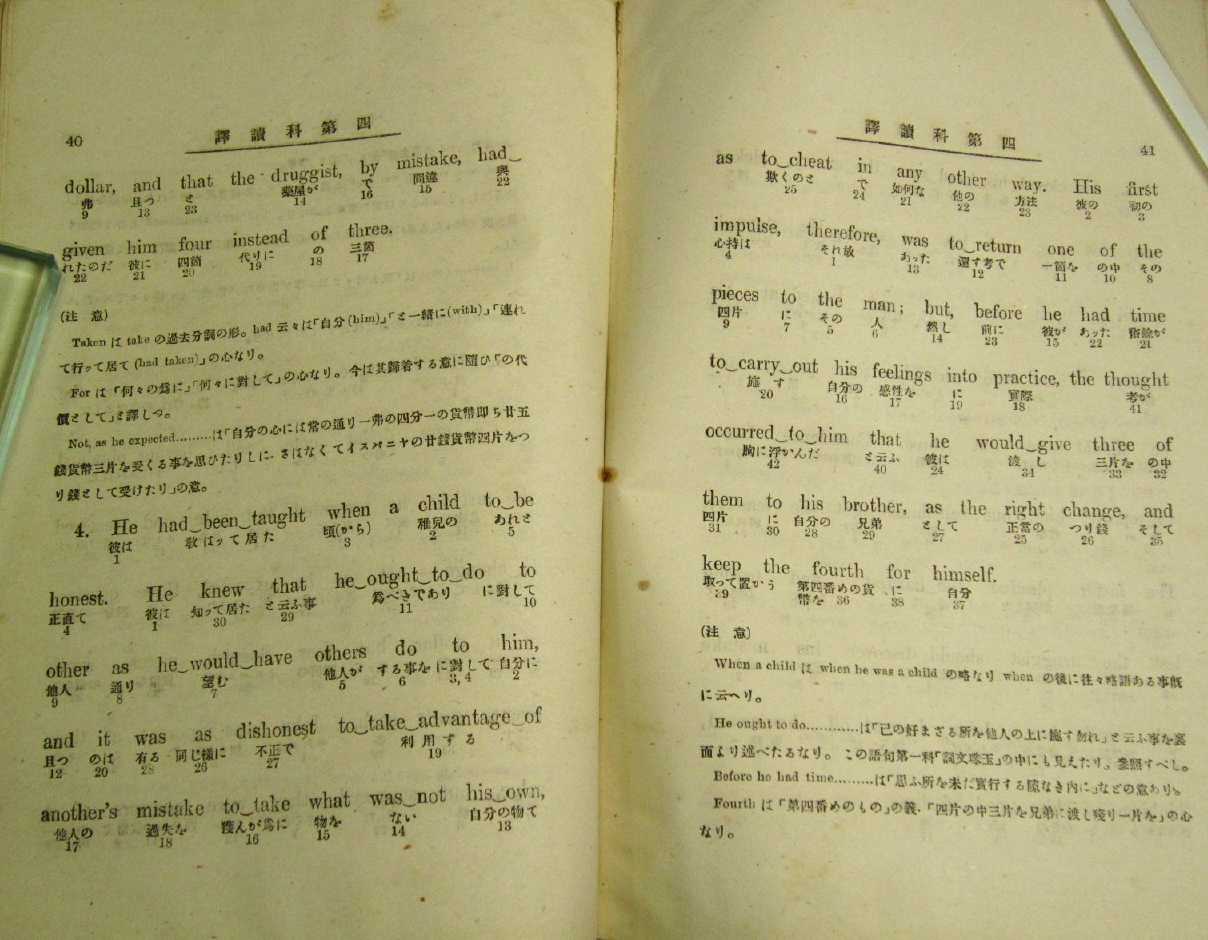 40
譯讀科第四
dollar, and that the druggist, by mistake, had‿
弗 且つ と 藥屋が で 間違 與
9 13 23 14 16 15 22
given him four instead of three.
れたのだ 彼に 四箇 代りに の 三箇
22 21 20 19 18 17
(注意)
Taken は take の過去分詞の形。had 云々は「自分(him)」「と一緒に(with)」「連れ
て行って居て(had taken)」の心なり。
For は「何々の爲に」「何々に對して」の心なり。今は其歸着する意に隨ひ「の代
價として」と譯しつ。
Not, as he expected.........は「自分の心には常の通り一弗の四分一の貨幣即ち廿五
錢貨幣三片を受くる事を思ひたりしに、さはなくてイスパニヤの廿錢貨幣四片をつ
り錢として受けたり」の意。
4. He had‿been‿taught when a child to‿be
彼は 敎はって居た 頃(から) 稚兒の あれと
1 3 2 5
honest. He knew that he‿ought‿to‿do to
正直で 彼は 知って居た と云ふ事 爲べきであり に對して
4 1 30 29 11 10
other as he‿would‿have others do to him,
他人 通り 望む 他人が する事を に對して 自分に
9 8 7 5 6 3,4 2
and it was as dishonest to‿take‿advantage‿of
且つ のは 有る 同じ樣に 不正で 利用する
12 20 28 26 27 19
another's mistake to‿take what was‿not his‿own,
他人の 過失を 獲んが爲に 物を ない 自分の物で
17 18 16 15 14 13
譯讀科第四
41
as to‿cheat in any other way. His first
欺くのと で 如何な 他の 方法 彼の 初の
25 24 21 22 23 2 3
impulse, therefore, was to‿return one of the
心持は それ故 あった 還す考で 一箇を の中 その
4 1 13 12 11 10 8
pieces to the man; but, before he had time
四片 に その 人 然し 前に 彼が あった 猶餘が
9 7 5 6 14 23 15 22 21
to‿carry‿out his feelings into practice, the thought
施す 自分の 感性を に 實際 考が
20 16 17 19 18 41
occurred‿to‿him that he would‿give three of
胸に浮かんだ と云ふ 彼は 渡し 三片を の中
42 40 24 34 33 32
them to his brother, as the right change, and
四片 に 自分の 兄弟 として 正常の つり錢 そして
31 30 28 29 27 25 26 35
keep the fourth for himself.
取って置かう 第四番めの貨 に 自分
39 幣を 36 38 37
(注意)
When a child は when he was a child の略なり when の後に往々略語ある事既
に云へり。
He ought to do............は「己の好まざる所を他人の上に施す勿れ」と云ふ事を裏
面より述べたるなり。この語句第一科「詞文珠玉」の中にも見えたり、參照すべし。
Before he had time.........は「思ふ所を未だ實行する隙なき内に」などの意あり。
Fourth は「第四番めのもの」の義、「四片の中三片を兄弟に渡し殘り一片を」の心
なり。